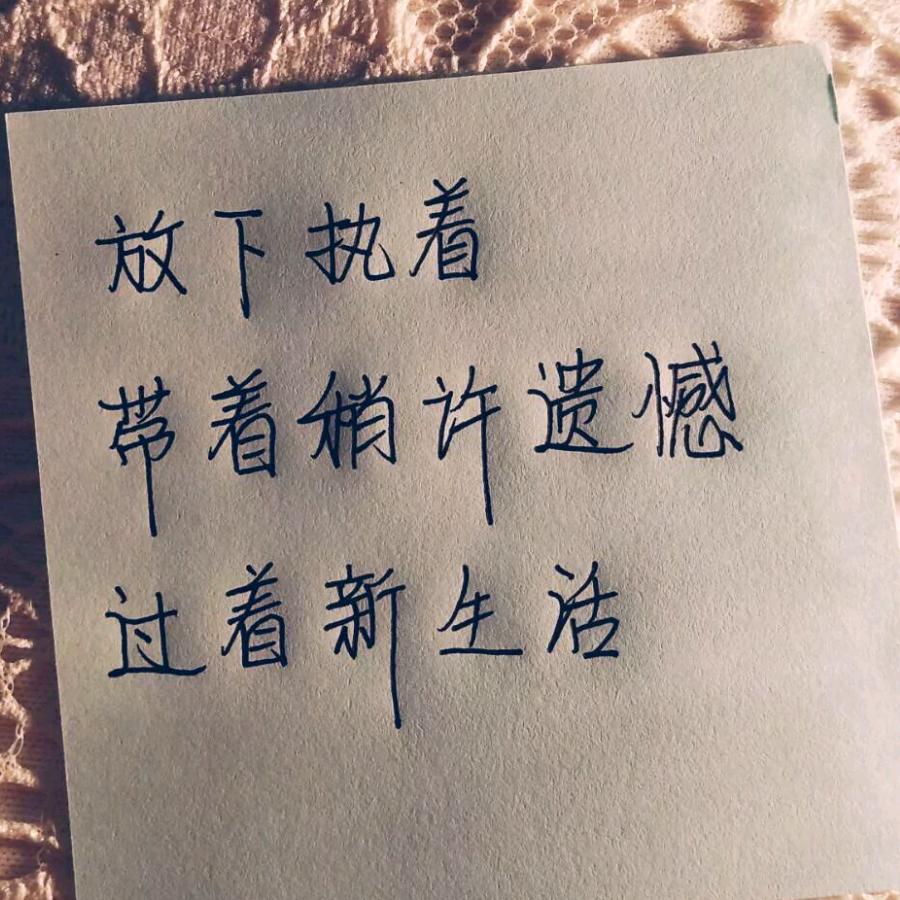 放下执着
带着稍许遗憾
过着新生活